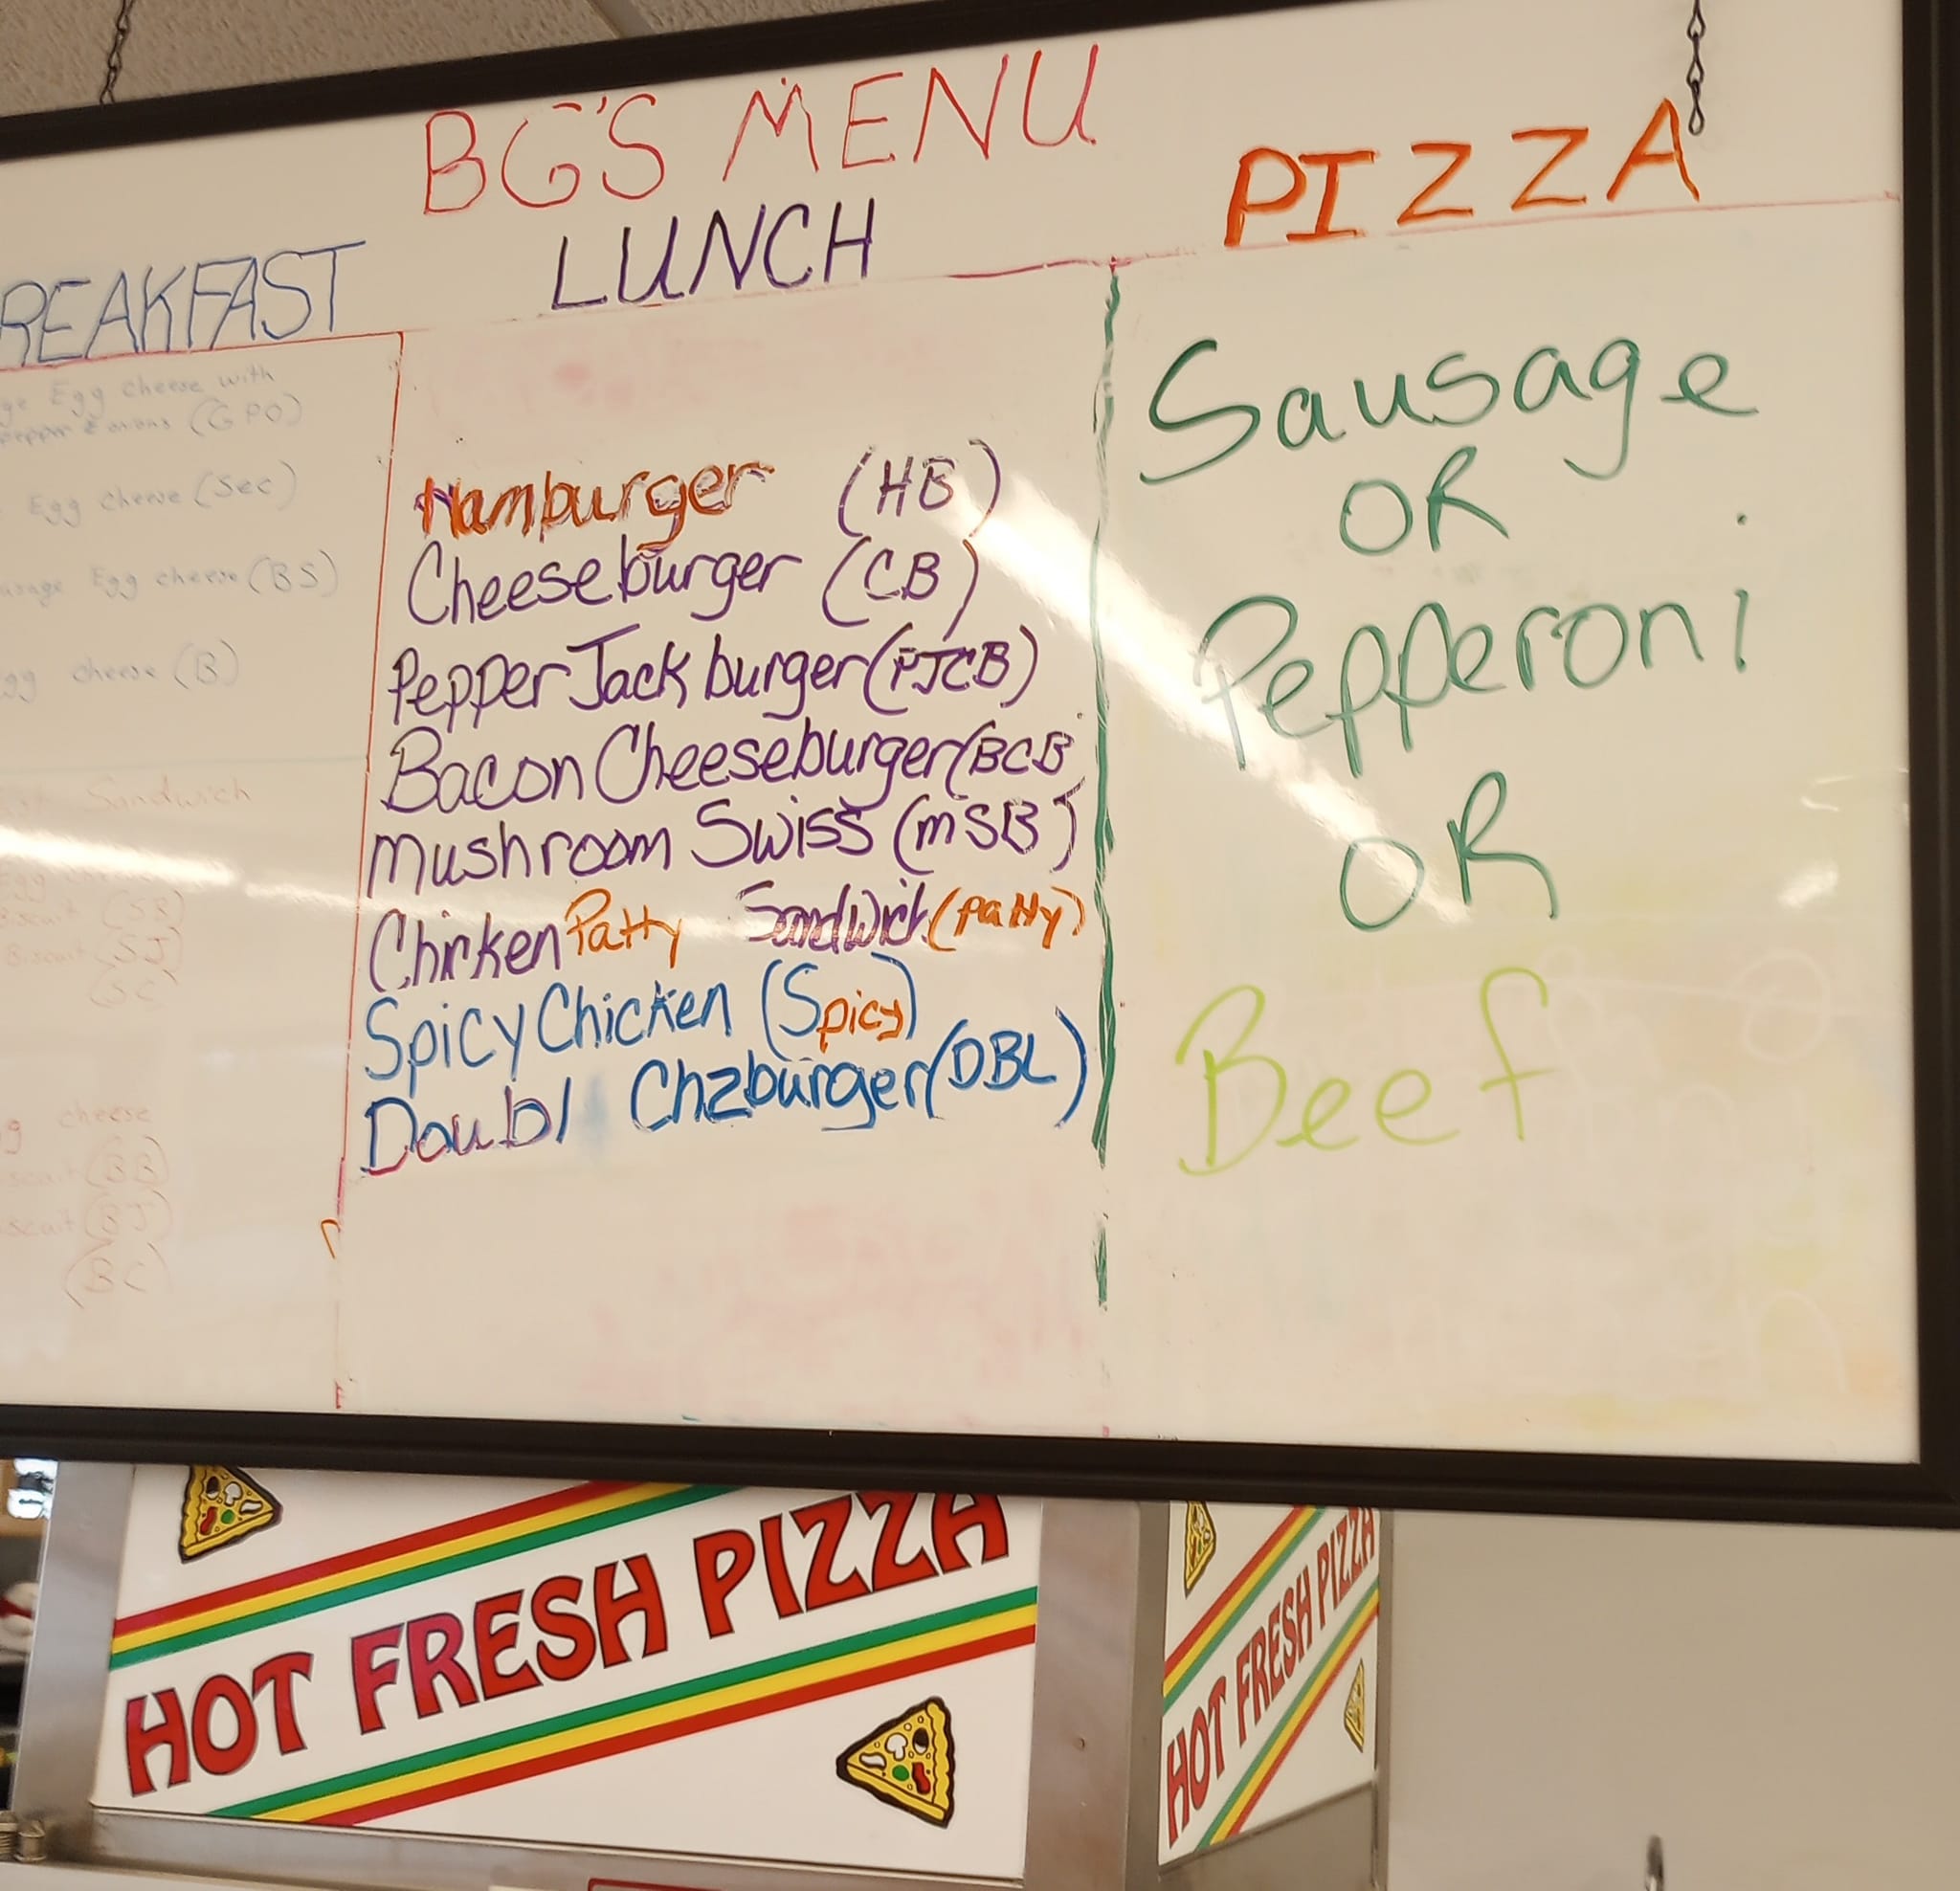 BG'S MENU
REAKFAST
Egg cheese with
(GPO)
Egg cheese (Sec)
Egg cheese (BS)
cheese (B)
Sandwich
Biscuit (SJ)
cheese
(BB)
(BJ)
(BC)
LUNCH
Hamburger (HB)
Cheeseburger (CB)
Pepper Jack burger (PJCB)
Bacon Cheeseburger (BCB
Mushroom Swiss (MSB)
Chicken Patty Sandwich (Patty)
Spicy Chicken (Spicy)
Doubl Chzburger (DBL)
PIZZA
Sausage
OR
Pepperoni
OR
Beef
HOT FRESH PIZZA
HOT FRESH PIZZA